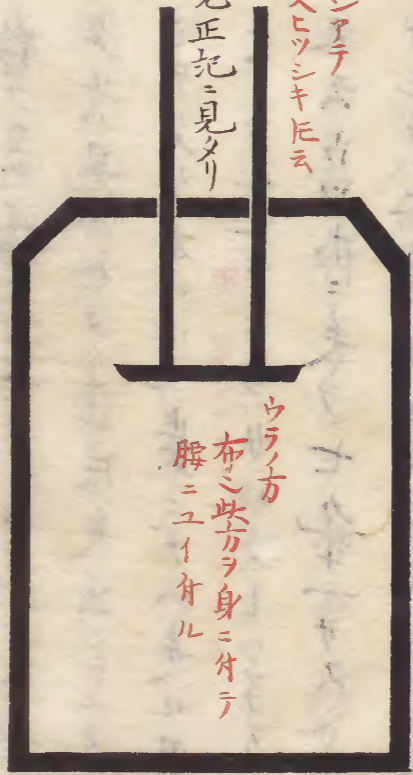 シアテ
ヒツシキ𪜈云
正記ニ見ヘタリ
ウラノ方
布ニ〆此方ヲ身ニ付テ
腰ニユイ付ル